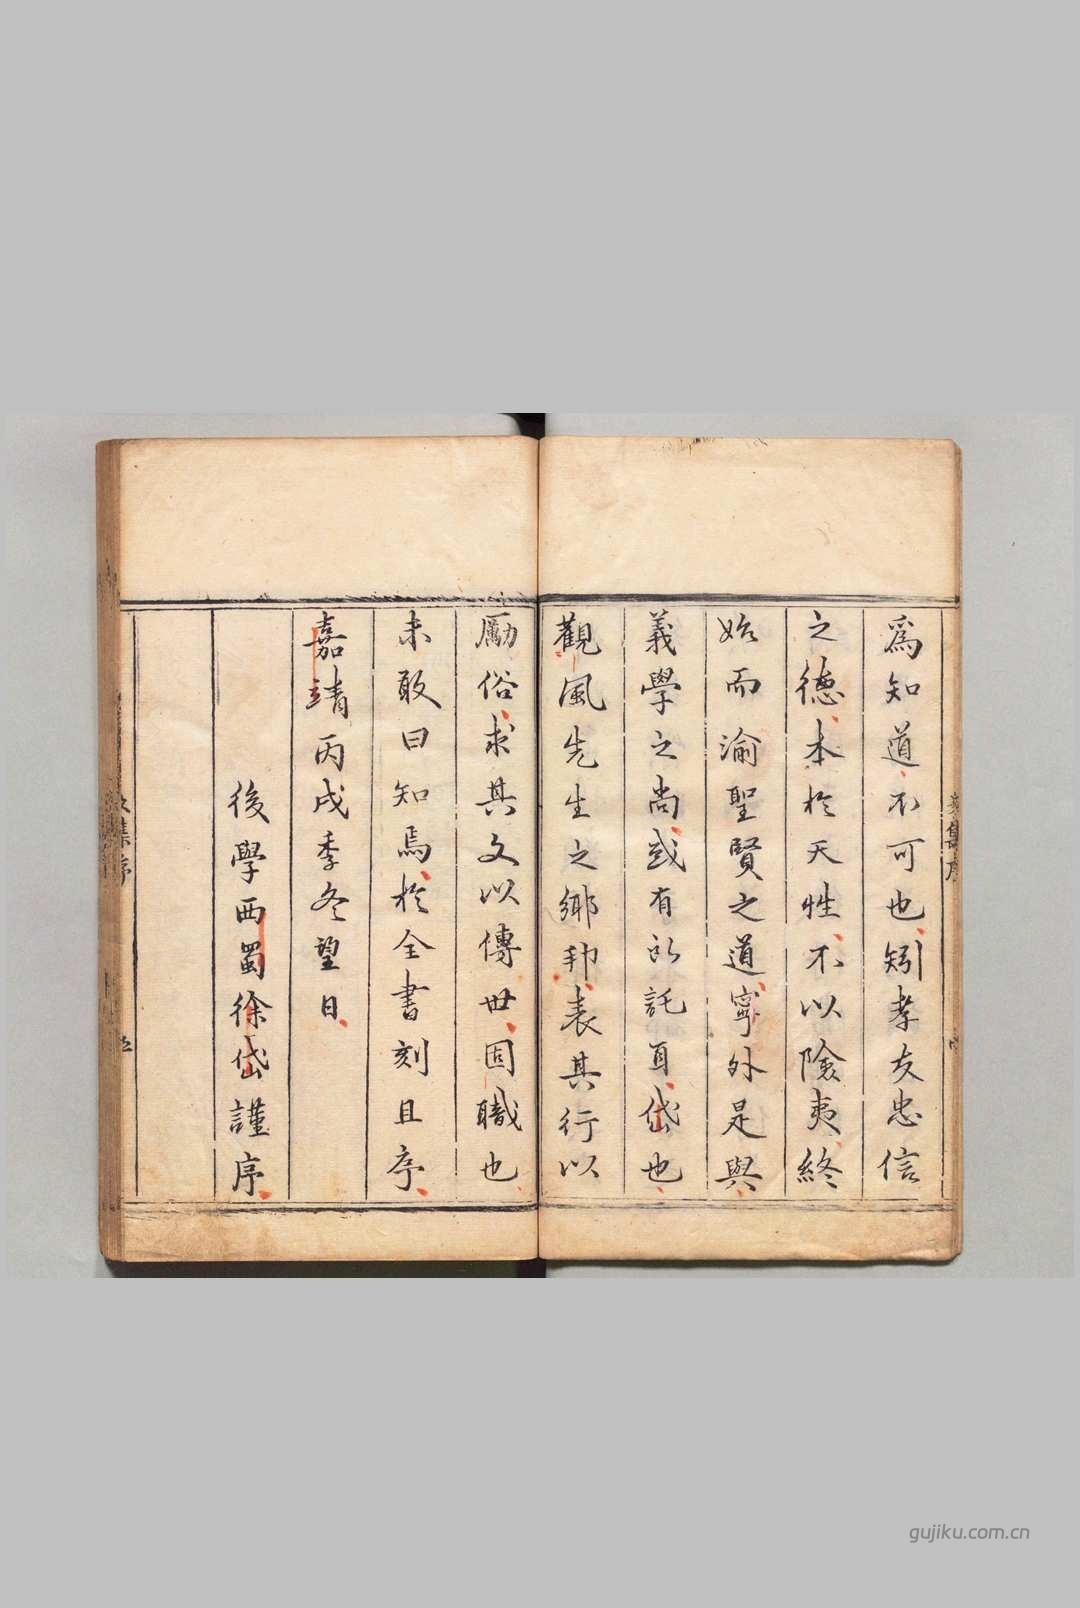 爲知道不可也矧孝友忠信
之德本於天性不以險夷終
始而渝聖賢之道寧外是與
義學之尚或有所託耳岱也
觀風先生之鄉邦表其行以
勵俗求其文以傳世固職也
未敢曰知焉於全書刻且序
嘉靖丙戌季冬望日
後學西蜀徐岱謹序
集序
gujiku.com.cn